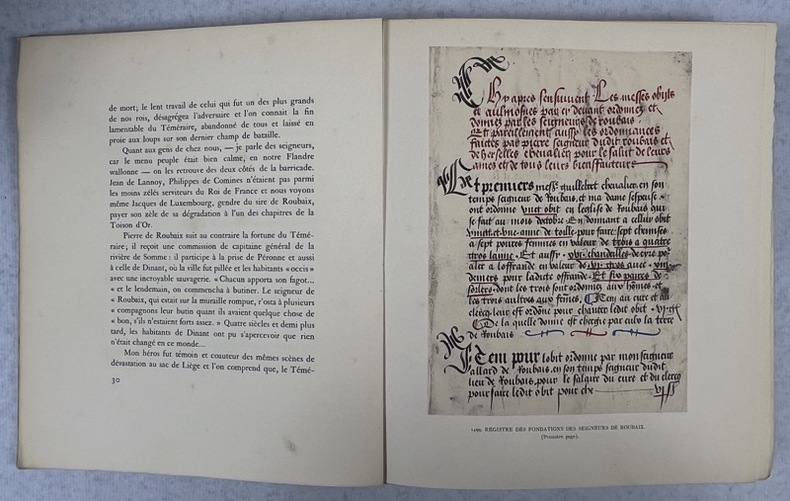 de mort; le lent travail de celui qui fut un des plus grands
de nos rois, désagrégea l'adversaire et l'on connait la fin
lamentable du Téméraire, abandonné de tous et laissé en
proie aux loups sur son dernier champ de bataille.
Quant aux gens de chez nous, — je parle des seigneurs,
car le menu peuple était bien calme, en notre Flandre
wallonne — on les retrouve des deux côtés de la barricade.
Jean de Lannoy, Philippes de Comines n'étaient pas parmi
les moins zélés serviteurs du Roi de France et nous voyons
même Jacques de Luxembourg, gendre du sire de Roubaix,
payer son zèle de sa dégradation à l'un des chapitres de la
Toison d'Or.
Pierre de Roubaix suit au contraire la fortune du Témé-
raire; il reçoit une commission de capitaine général de la
rivière de Somme : il participe à la prise de Péronne et aussi
à celle de Dinant, où la ville fut pillée et les habitants « occis »
avec une incroyable sauvagerie. « Chacun apporta son fagot...
« et le lendemain, on commencha à butiner. Le seigneur de
« Roubaix, qui estait sur la muraille rompue, r'osta à plusieurs
« compagnons leur butin quant ils avaient quelque chose de
« bon, s'ils n'estaient forts assez. » Quatre siècles et demi plus
tard, les habitants de Dinant ont pu s'apercevoir que rien
n'était changé en ce monde...
Mon héros fut témoin et coauteur des mêmes scènes de
dévastation au sac de Liège et l'on comprend que, le Témé-
30
Chy apres senssuivent Les messes obijts
et aulmosnes par cy devant ordonnez et
donnez par les seigneurs de roubais.
Et pareillement aussy les ordonnances
faictes par pierre seigneur dudit roubais et
de herselles chevalier pour le salut de leurs
ames et de tous leurs bienffaicteurs
Et premiers mess guillebert chevalier en son
temps seigneur de Roubais et ma dame
ont ordonne vingt obit en leglise de Roubais qui
se fait au mois doctobre En donnant a cellui obit
vingt et une aune de toille pour faire sept chemises
a sept povres femmes en valeur de trois a quatre
laune Et aussy chandeilles de cyre po
aler a loffrande en valeur de avec
deniers pour ladicte offrande Et six paires de
sollers dont les trois sont ordonnez aux homes et
les trois aultres aux femes Item au cure et au
clercq leur est ordone pour chanter ledit obit
De la quelle donne est chergie par la terre
de Roubais
Item pour lobit ordonne par mon seigneur
allard de Roubais en son temps seigneur dudit
lieu de Roubais pour le salaire du cure et du clercq
pour faire ledit obit pour
1499. REGISTRE DES FONDATIONS DES SEIGNEURS DE ROUBAIX.
(Première page).